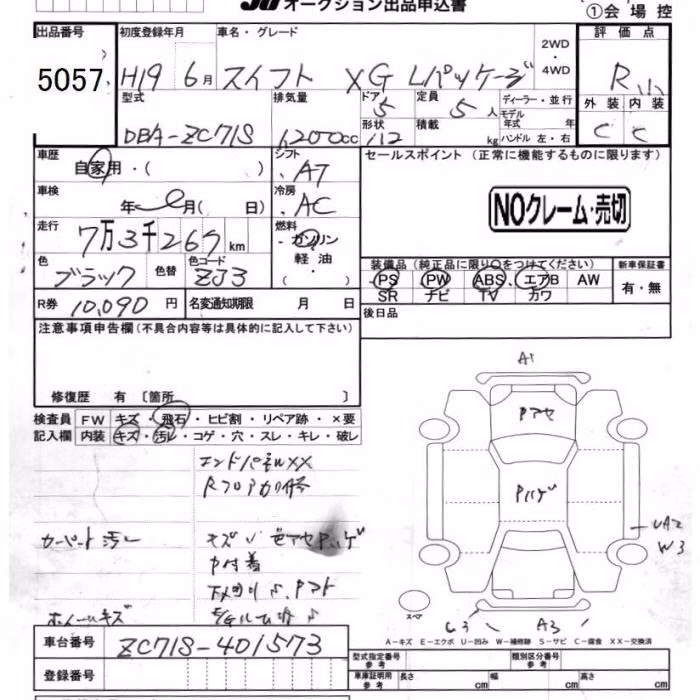 オークション出品申込書
①会場控
出品番号 初度登録年月 車名・グレード 2WD・4WD 評価点
5057 H19 6月 スイフト XG Lパッケージ R
型式 排気量 ドア 定員 ディーラー・並行 外装 内装
DBA-ZC71S 1200cc 5 5人 モデル年式 年 C C
形状 積載 kg ハンドル 左・右
車歴 自家用・( ) シフト AT セールスポイント (正常に機能するものに限ります)
車検 年 月( 日) 冷房 AC
NOクレーム・売切
走行 7万3千269km 燃料 ガソリン・軽油・( )
色 ブラック 色替 色コード ZJ3
装備品 (純正品に限り○をつけてください) 新車保証書
PS PW ABS エアB AW 有・無
SR ナビ TV カワ
R券 10,090円 名変通知期限 月 日
後日品
注意事項申告欄 (不具合内容等は具体的に記入して下さい)
修復歴 有 〔箇所 〕
検査員 FW キズ・飛石・ヒビ割・リペア跡・×要
記入欄 内装 キズ・汚レ・コゲ・穴・スレ・キレ・破レ
エンドパネルXX
Rフロア
カーペット汚レ
P付着
ホイールキズ
A1
Pハゲ
UA2
W3
スペア
A3
A-キズ E-エクボ U-凹み W-補修跡 S-サビ C-腐食 XX-交換済
車台番号 ZC71S-401573
登録番号
型式指定番号 参考 類別区分番号 参考
車庫証明用 参考 長さ cm 幅 cm 高さ cm